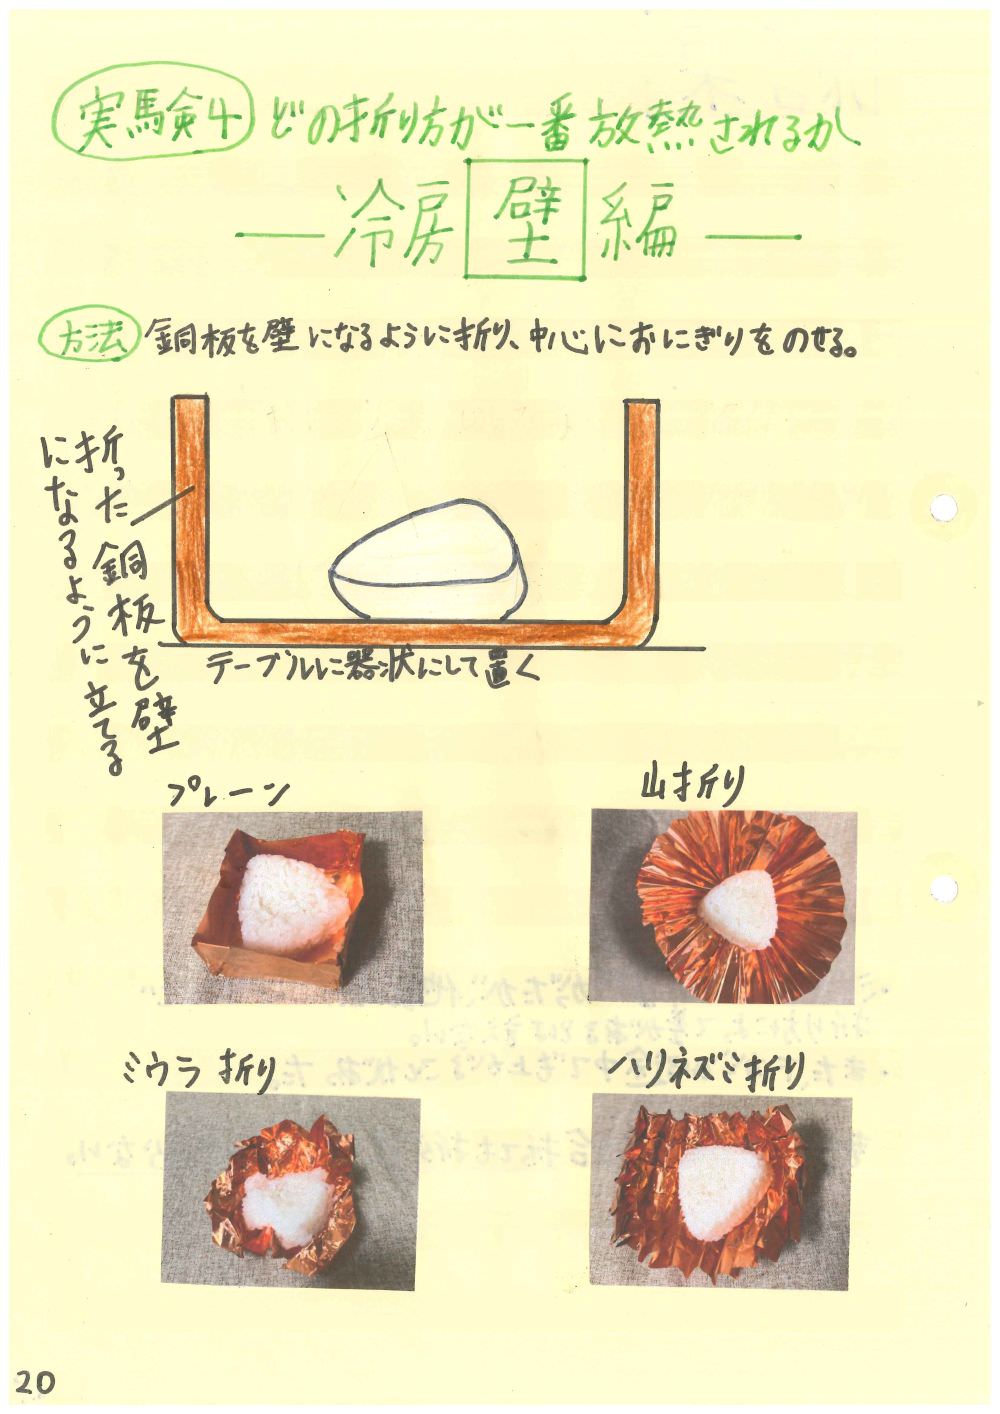 実験4 どの折り方が一番放熱されるか
―冷房 壁 編―
方法 銅板を壁になるように折り、中心におにぎりをのせる。
折った銅板を壁
になるように立てる
テーブルに器状にして置く
プレーン
山折り
ミウラ折り
ハリネズミ折り
20